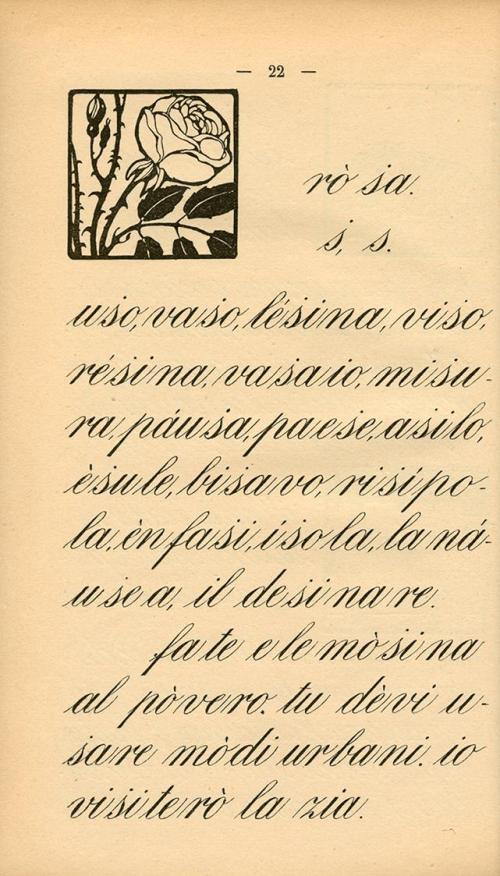 — 22 —
rò ṡa.
ṡ, s.
uṡo, vaṡo, léṡina, viṡo,
réṡina, vaṡaio, miṡu-
ra, páuṡa, paeṡe, aṡilo,
èṡule, biṡavo, riṡípo-
la, ènfaṡi, íṡola, la náu-
ṡea, il deṡinare.
fate elemòṡina
al pòvero. tu dèvi u-
ṡare mòdi urbani. io
viṡiterò la zia.